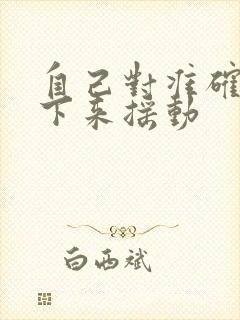 自己對準確
下來搖動
白西斌